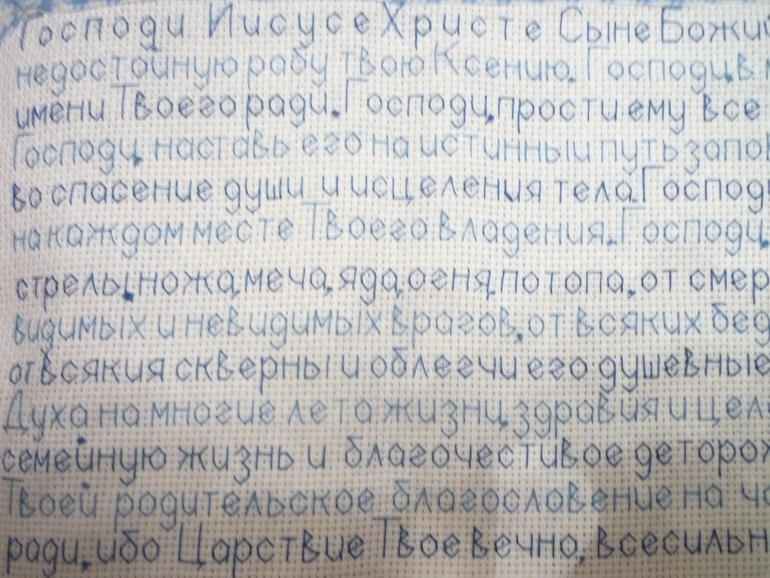 Господи Иисусе Христе Сыне Божий
недостойную рабу твою Ксению. Господи, в
имени Твоего ради. Господи, прости ему все
Господи, наставь его на истинный путь
во спасение души и исцеления тела. Господи
на каждом месте Твоего владения. Господи,
стрелы, ножа, меча, яда, огня, потопа, от
видимых и невидимых врагов, от всяких
от всякия скверны и облегчи его душевные
Духа на многие лета жизни, здравия и
семейную жизнь и благочестивое
Твоей родительское благословение на
ради, ибо Царствие Твое вечно,